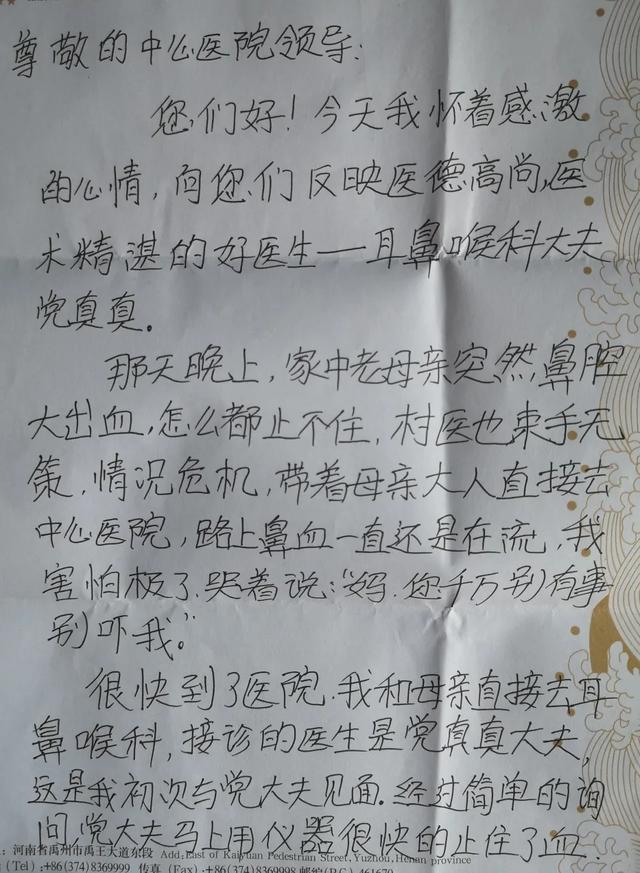 尊敬的中心医院领导:
您们好！今天我怀着感激
的心情,向您们反映医德高尚,医
术精湛的好医生——耳鼻喉科大夫
党真真。
那天晚上,家中老母亲突然鼻腔
大出血,怎么都止不住,村医也束手无
策,情况危机,带着母亲大人直接去
中心医院,路上鼻血一直还是在流,我
害怕极了.哭着说:“妈.您千万别有事
别吓我。”
很快到了医院.我和母亲直接去耳
鼻喉科,接诊的医生是党真真大夫,
这是我初次与党大夫见面.经过简单的询
问,党大夫马上用仪器很快的止住了血.
：河南省禹州市禹王大道东段 Add:East of Kaiyuan Pedestrian Street,Yuzhou,Henan province
(Tel):+86(374)8369999 传真 (Fax):+86(374)8369998 邮编(P.C.) 461670